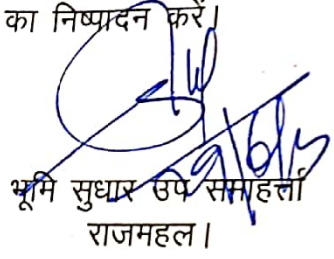 का निष्पादन करें।
भूमि सुधार उप समाहर्त्ता
राजमहल।